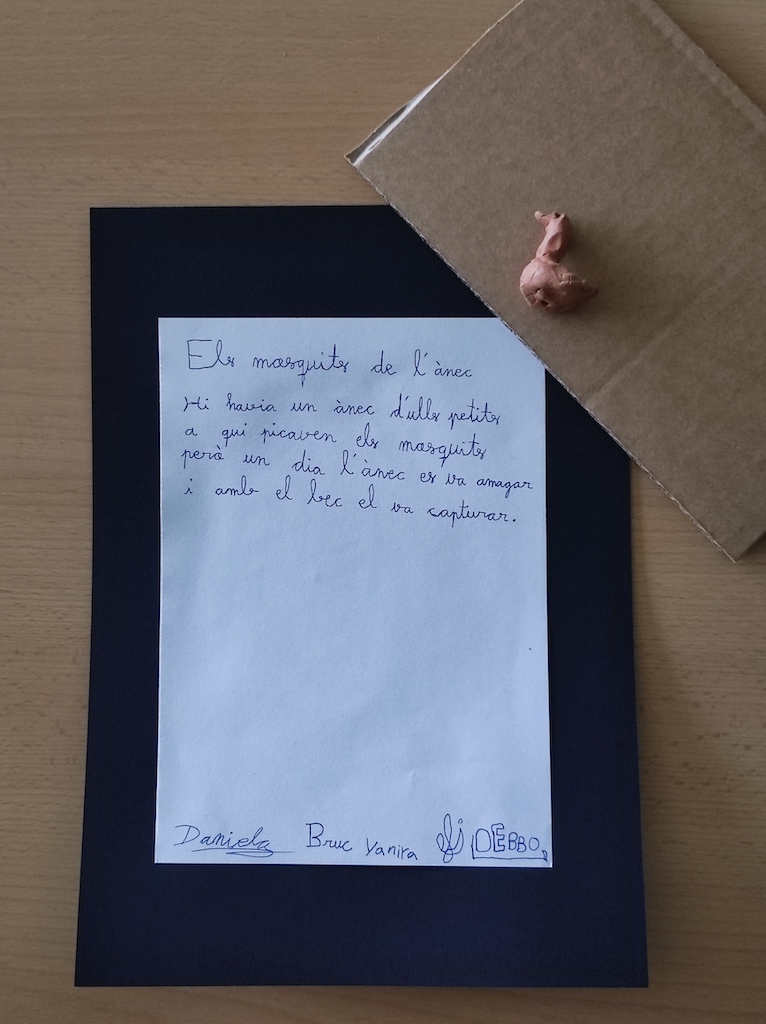 Els mosquits de l'ànec
Hi havia un ànec d'ulls petits
a qui picaven els mosquits
però un dia l'ànec es va amagar
i amb el bec el va capturar.
Daniela Bruc Yanira DEBBO